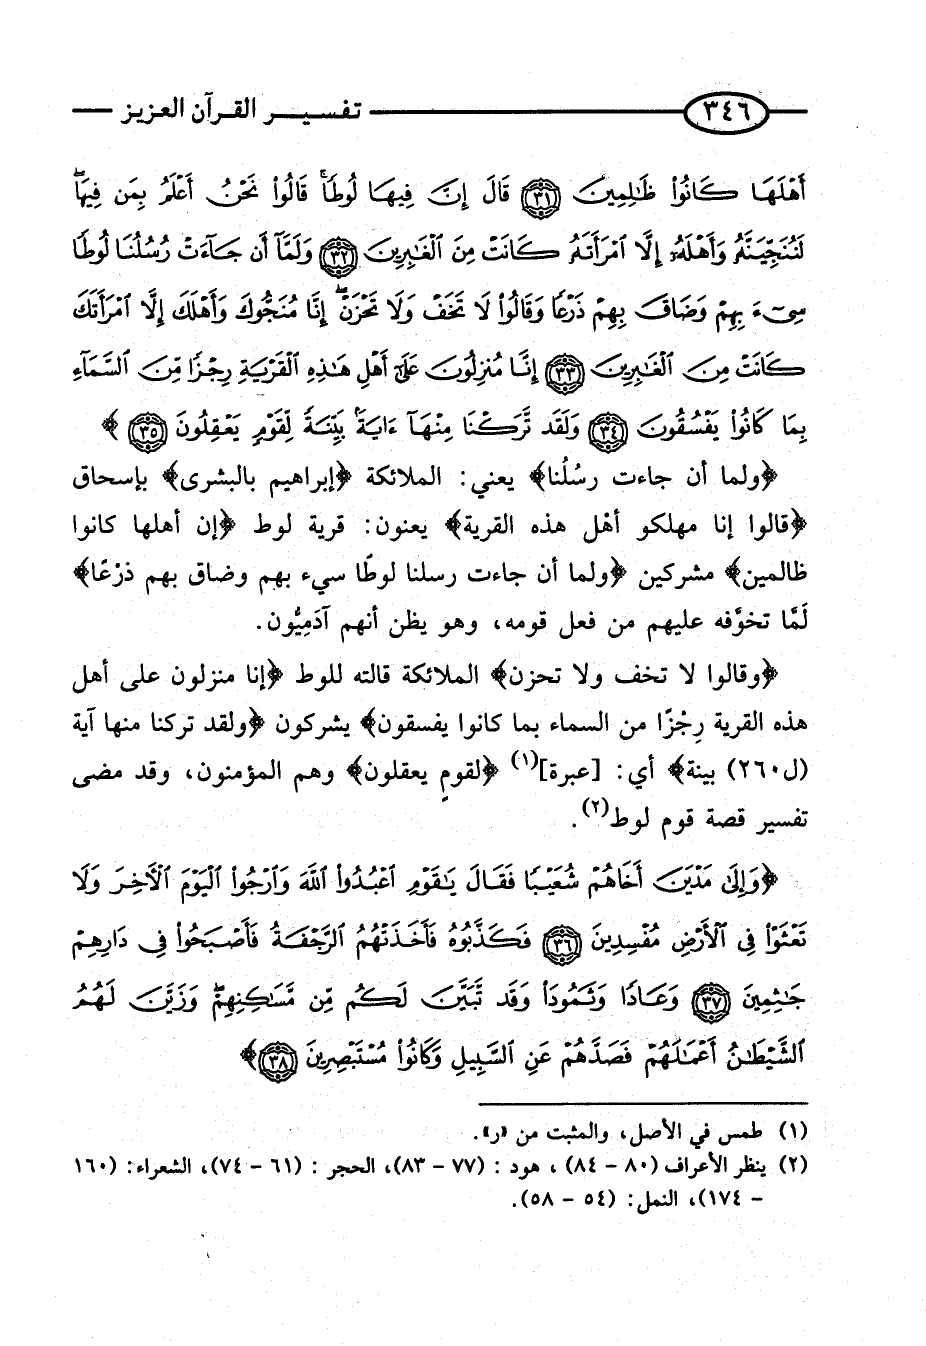 ٣٤٦ تفسير القرآن العزيز
أَهْلَهَا كَانُوا۟ ظَٰلِمِينَ ﴿٣١﴾ قَالَ إِنَّ فِيهَا لُوطًا ۚ قَالُوا۟ نَحْنُ أَعْلَمُ بِمَن فِيهَا ۖ
لَنُنَجِّيَنَّهُۥ وَأَهْلَهُۥٓ إِلَّا ٱمْرَأَتَهُۥ كَانَتْ مِنَ ٱلْغَٰبِرِينَ ﴿٣٢﴾ وَلَمَّآ أَن جَآءَتْ رُسُلُنَا لُوطًا
سِىٓءَ بِهِمْ وَضَاقَ بِهِمْ ذَرْعًا وَقَالُوا۟ لَا تَخَفْ وَلَا تَحْزَنْ ۖ إِنَّا مُنَجُّوكَ وَأَهْلَكَ إِلَّا ٱمْرَأَتَكَ
كَانَتْ مِنَ ٱلْغَٰبِرِينَ ﴿٣٣﴾ إِنَّا مُنزِلُونَ عَلَىٰٓ أَهْلِ هَٰذِهِ ٱلْقَرْيَةِ رِجْزًا مِّنَ ٱلسَّمَآءِ
بِمَا كَانُوا۟ يَفْسُقُونَ ﴿٣٤﴾ وَلَقَد تَّرَكْنَا مِنْهَآ ءَايَةًۢ بَيِّنَةً لِّقَوْمٍ يَعْقِلُونَ ﴿٣٥﴾ ﴾
﴿ولما أن جاءت رسُلُنا﴾ يعني: الملائكة ﴿إبراهيم بالبشرى﴾ بإسحاق
﴿قالوا إنا مهلكو أهْل هذه القرية﴾ يعنون: قرية لوط ﴿إن أهلها كانوا
ظالمين﴾ مشركين ﴿ولما أن جاءت رسلنا لوطًا سيء بهم وضاق بهم ذرْعًا﴾
لَمَّا تخوَّفه عليهم من فعل قومه، وهو يظن أنهم آدَمِيُّون.
﴿وقالوا لا تخف ولا تحزن﴾ الملائكة قالته للوط ﴿إنا منزلون على أهل
هذه القرية رِجْزًا من السماء بما كانوا يفسقون﴾ يشركون ﴿ولقد تركنا منها آية
(ل٢٦٠) بينة﴾ أي: [عبرة](١) ﴿لقومٍ يعقلون﴾ وهم المؤمنون، وقد مضى
تفسير قصة قوم لوط(٢).
﴿وَإِلَىٰ مَدْيَنَ أَخَاهُمْ شُعَيْبًا فَقَالَ يَٰقَوْمِ ٱعْبُدُوا۟ ٱللَّهَ وَٱرْجُوا۟ ٱلْيَوْمَ ٱلْأَخِرَ وَلَا
تَعْثَوْا۟ فِى ٱلْأَرْضِ مُفْسِدِينَ ﴿٣٦﴾ فَكَذَّبُوهُ فَأَخَذَتْهُمُ ٱلرَّجْفَةُ فَأَصْبَحُوا۟ فِى دَارِهِمْ
جَٰثِمِينَ ﴿٣٧﴾ وَعَادًا وَثَمُودَا۟ وَقَد تَّبَيَّنَ لَكُم مِّن مَّسَٰكِنِهِمْ ۖ وَزَيَّنَ لَهُمُ
ٱلشَّيْطَٰنُ أَعْمَٰلَهُمْ فَصَدَّهُمْ عَنِ ٱلسَّبِيلِ وَكَانُوا۟ مُسْتَبْصِرِينَ ﴿٣٨﴾ ﴾
(١) طمس في الأصل، والمثبت من «ر».
(٢) ينظر الأعراف (٨٠ – ٨٤) ، هود : (٧٧ – ٨٣)، الحجر : (٦١ – ٧٤)، الشعراء: (١٦٠
– ١٧٤)، النمل: (٥٤ – ٥٨).